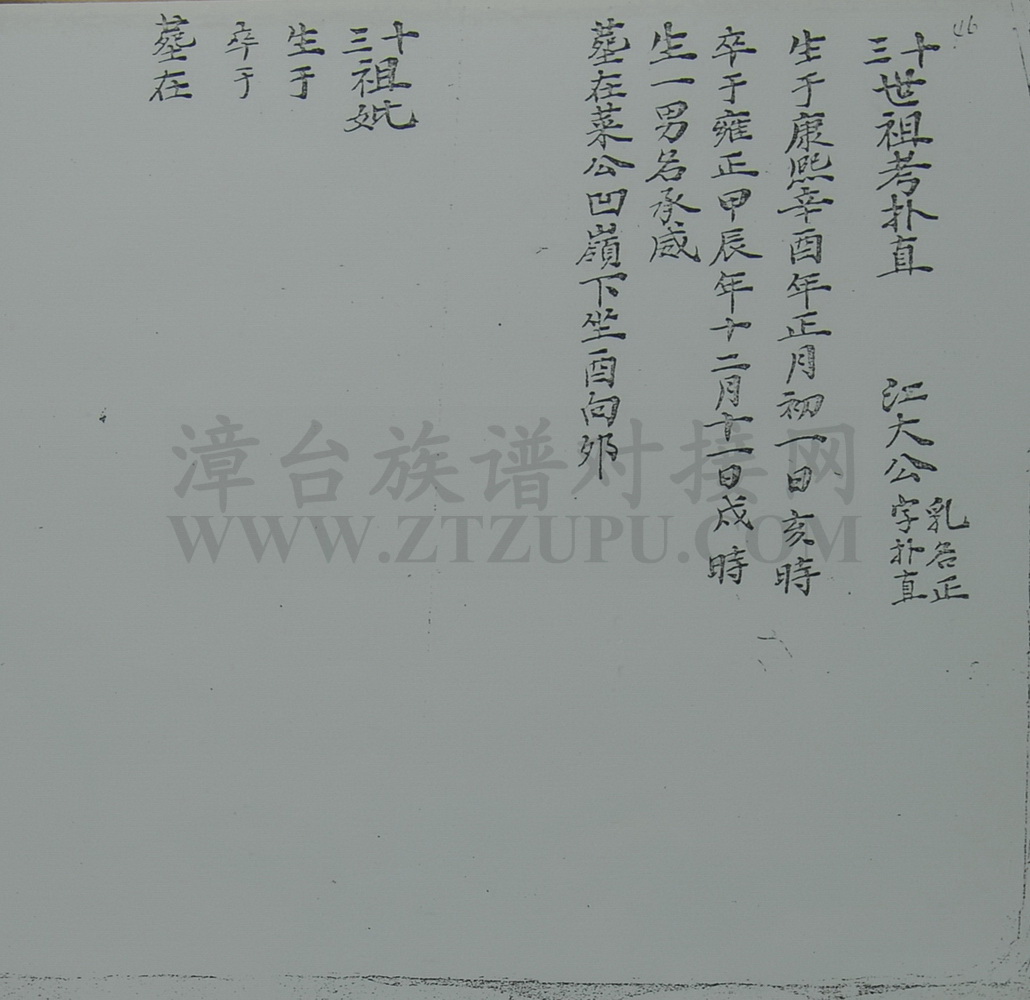 46
十三世祖考扑直 江大公 乳名正 字扑直
生于康熙辛酉年正月初一日亥時
卒于雍正甲辰年十二月十一日戌時
生一男名承感
墓在菜公凹嶺下坐酉向夘
十三祖妣
生于
卒于
墓在
漳台族谱对接网
WWW.ZTZUPU.COM